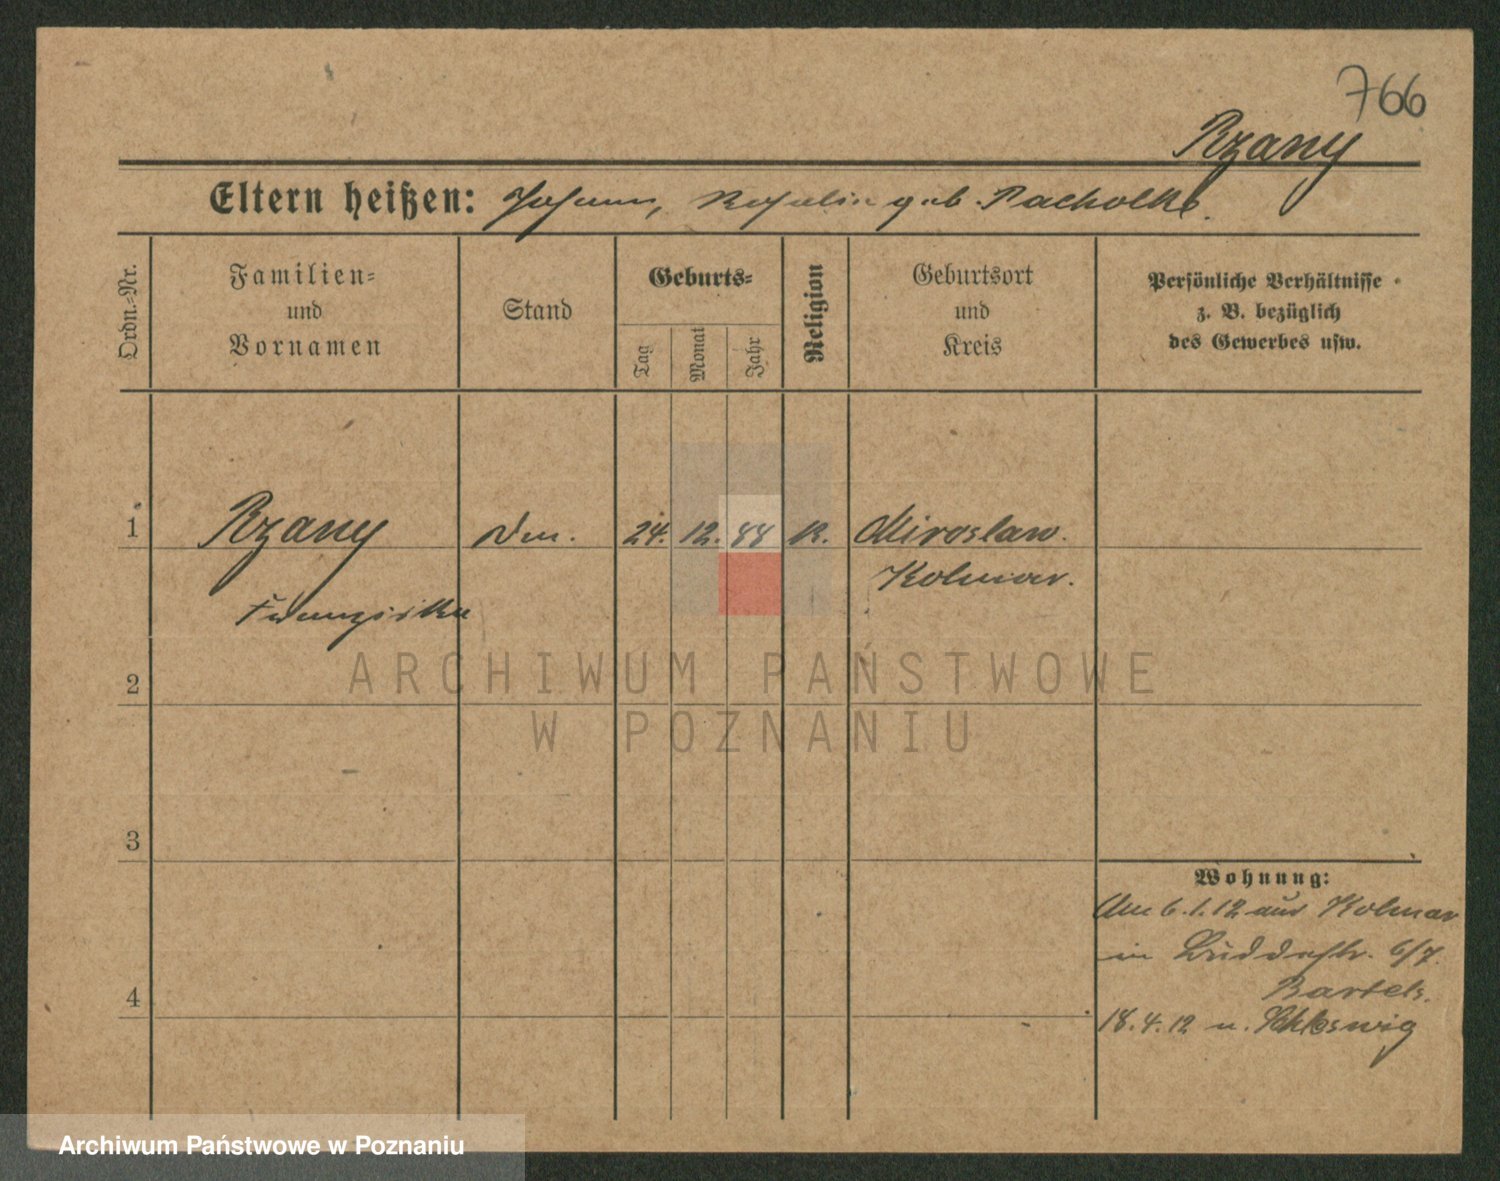 766
Rzany
Eltern heißen: Johann, Rosalie geb. Pacholke.
Ordn.-Nr.
Familien-
und
Vornamen
Stand
Geburts-
Tag
Monat
Jahr
Religion
Geburtsort
und
Kreis
Persönliche Verhältnisse
z. B. bezüglich
des Gewerbes usw.
1 Rzany 24. 12. 88 K. Miroslaw.
Kolmar.
Franziska
2
3
4
Wohnung:
Am 6.1.12 aus Kolmar
in Buddestr. 6/7.
Bartels.
18.4.12 n. Schleswig
ARCHIWUM PAŃSTWOWE
W POZNANIU
Archiwum Państwowe w Poznaniu